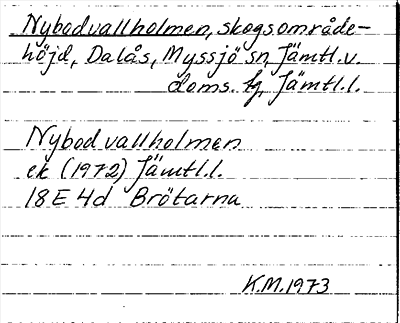 Nybodvallholmen, skogsområde-
höjd, Dalås, Myssjö sn, Jämtl.v.
doms. fg, Jämtl.l.
Nybodvallholmen
ek (1972) Jämtl.l.
18E 4d Brötarna
K.M.1973